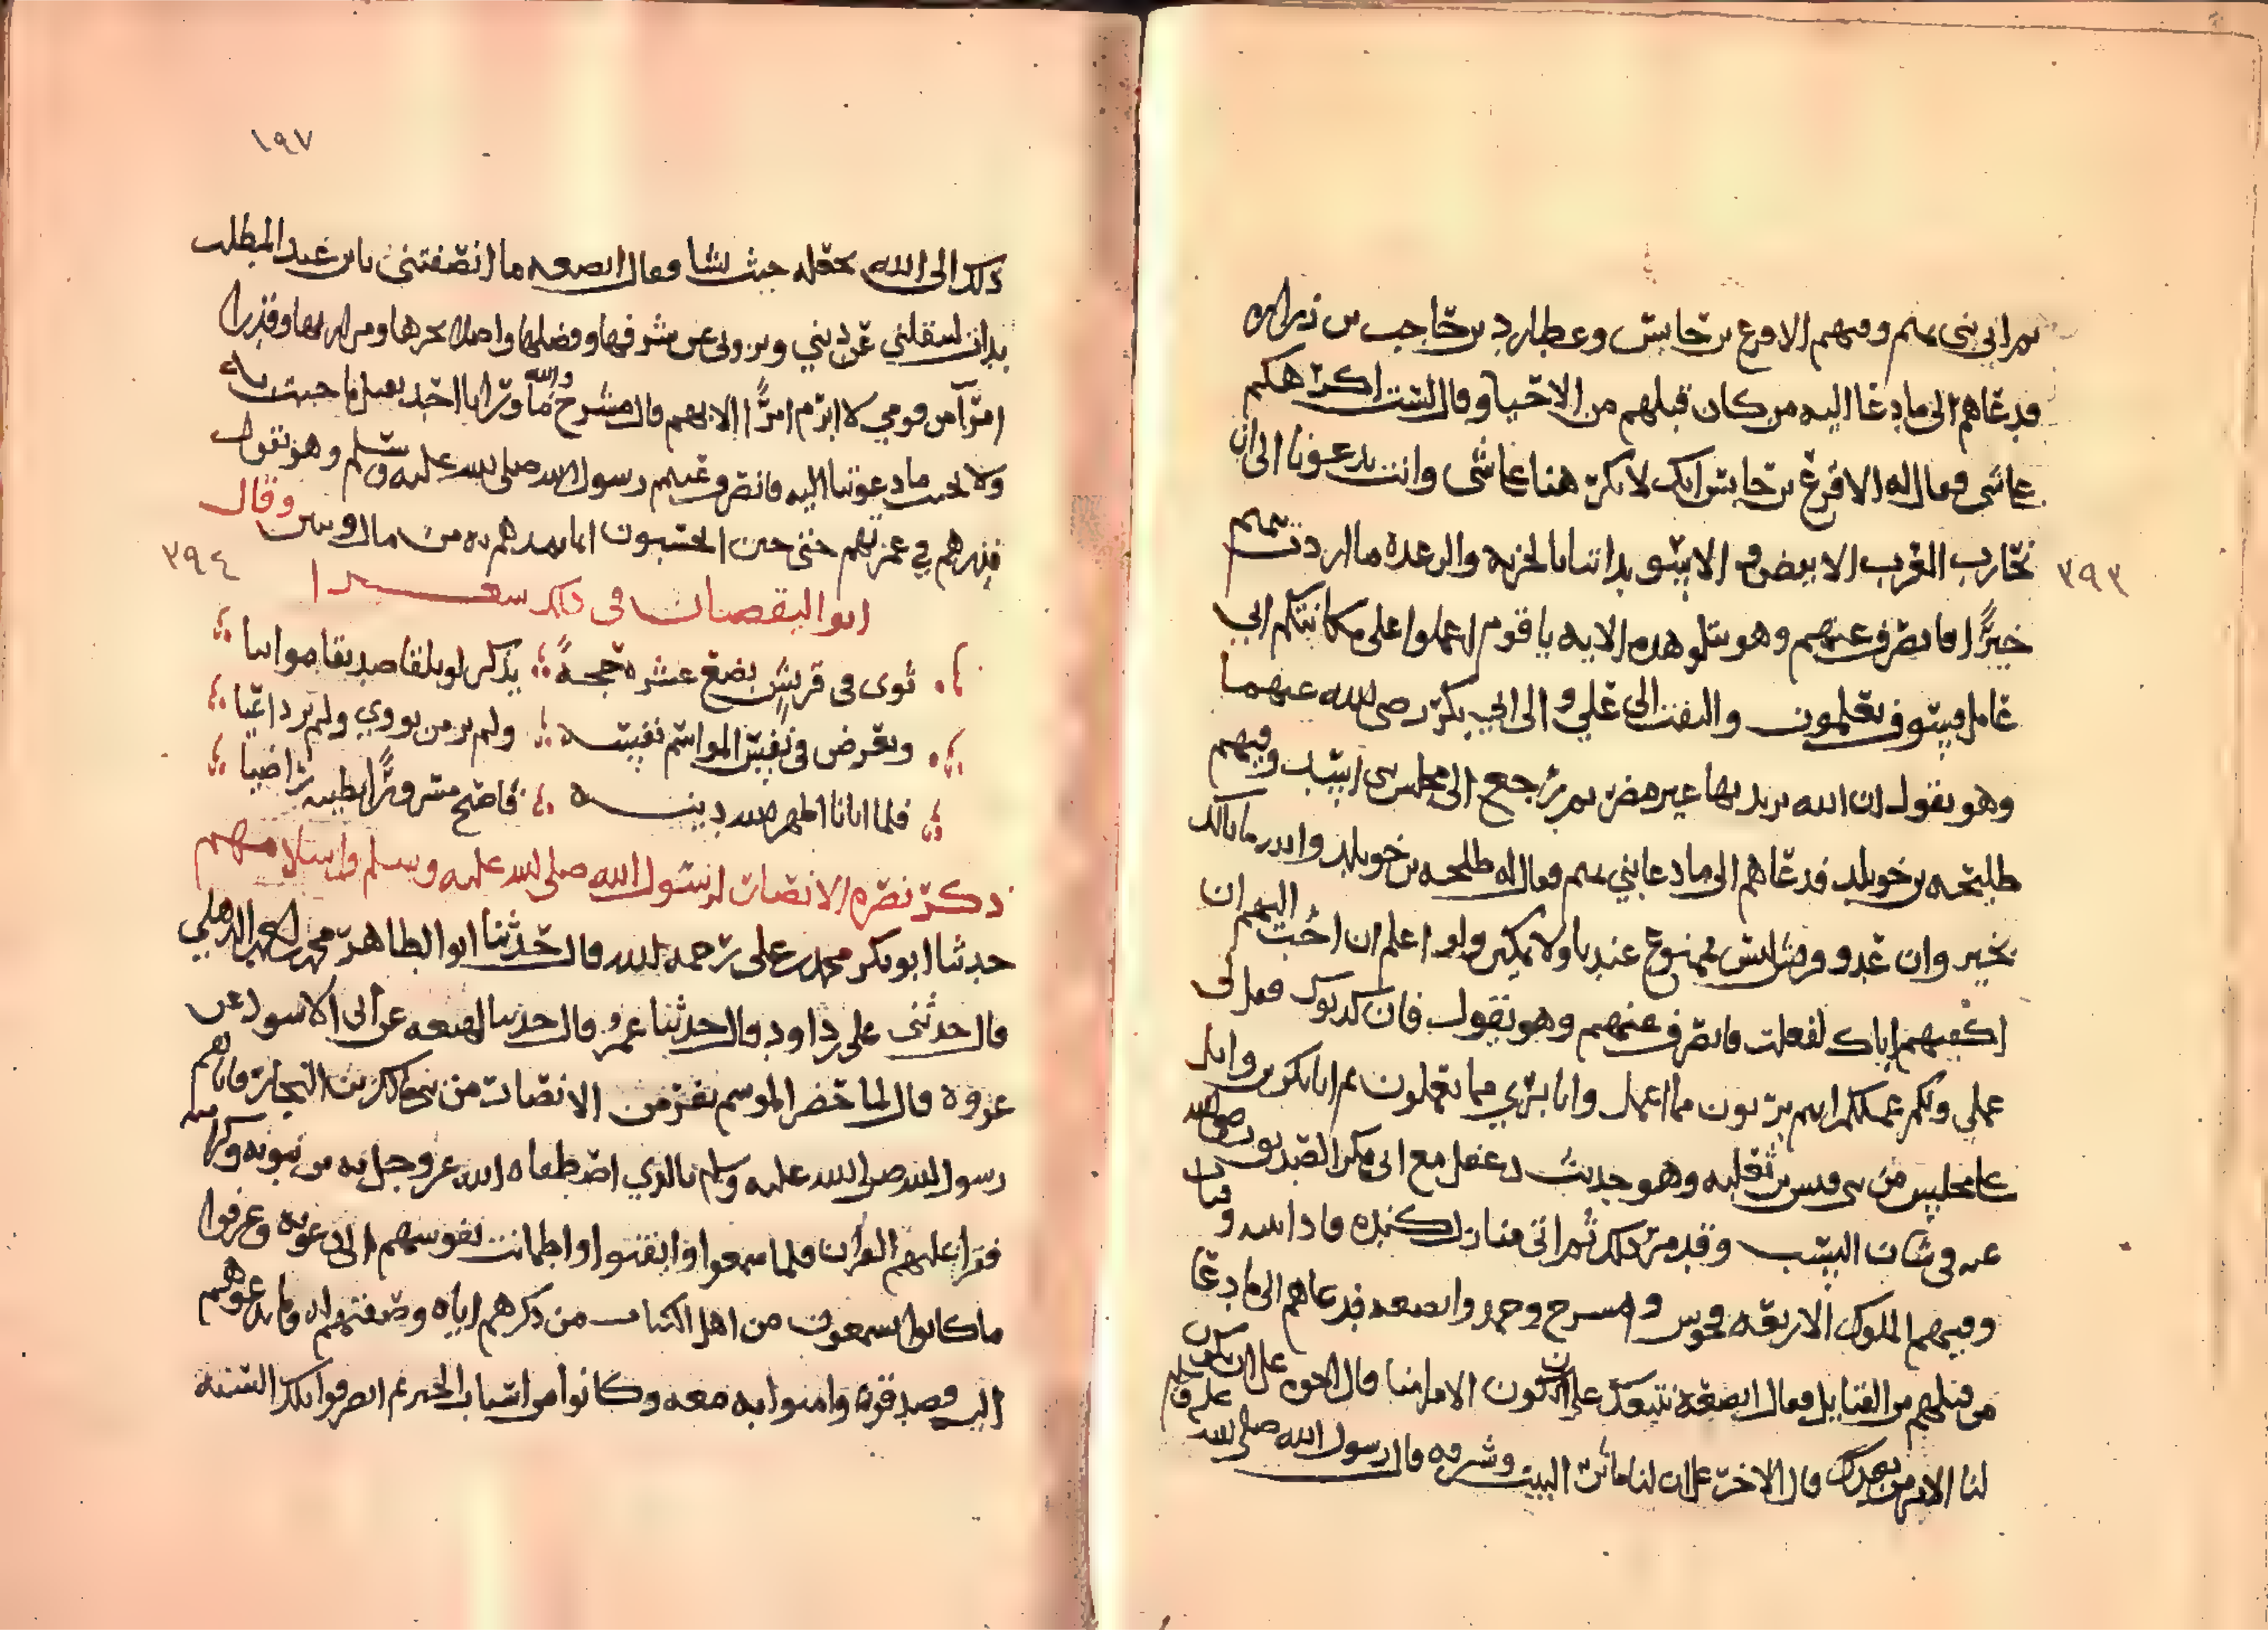 ثم اتى بني تميم وفيهم الاقرع بن حابس وعطارد بن حاجب بن زراره
فدعاهم الى ما دعا اليه من كان قبلهم من الاحيا وقال لست اكرهكم
على شي فقال له الاقرع بن حابس انك لا تكرهنا على شي وانت تدعونا الى ان
٣٩٣
نحارب العرب الابيض والاسود اتنا بالخزيه والرعده ما اردت تميم
خيرًا فانصرف عنهم وهو يتلو هذه الايه يا قوم اعملوا على مكانتكم اني
عامل فسوف تعلمون والتفت الى علي والى ابي بكر رضي الله عنهما
وهو يقول ان الله يريد بها غير مضر ثم رجع الى مجلس بني اسد وفيهم
طليحه بن خويلد فدعاهم الى ما دعا بني تميم فقال له طليحه بن خويلد
بخير وان عدو قريش ليس بممنوع عندنا ولا نمكن ولو اعلم ان احب اليهم ان
اكفيهم اياك لفعلت فانصرف عنهم وهو يقول فان كذبوك فقل لي
عملي ولكم عملكم انتم بريون مما اعمل وانا بري مما تعملون ثم اتا بكر بن وايل
على مجلس من بني قيس بن ثعلبه وهو حديث دغفل مع ابي بكر الصديق رضي الله
عنه في شان النسب وقد مر ذلك ثم اتى منازل كنده
وفيهم الملوك الاربعه مخوس ومسرح وجمد وابضعه فدعاهم الى ما دعا
من قبلهم من القبايل فقال ابضعه نتبعك على ان يكون الامر لنا قال على ان يكون
لنا الامر من بعدك قال الاخر على ان لنا مأثرة البيت وشرفه قال رسول الله صلى الله عليه وسلم
١٩٧
ذلك الى الله يجعله حيث يشا وقال ابضعه ما انصفتني يابن عبد المطلب
تريد ان تنقلني عن ديني وتزوي عني شرفها وفضلها
امرًا من قومي لا ابرم امرًا الا بهم قال مشرح والله ما نرا يا احد نقبل ما جيت به
ولا نحب ما دعوتنا اليه فانصرف عنهم رسول الله صلى الله عليه وسلم وهو يقول
فذرهم في غمرتهم حتى حين ايحسبون انما نمدهم به من مال وبنين وقال
٣٩٤
ابو اليقصان في ذلك شعرا
ثوى في قريش بضع عشره حجةً يذكر لو يلقا صديقا مواتيا
ويعرض في نفيس المواسم نفيسه ولم ير من يووي ولم ير داعيا
فلما اتانا اظهر الله دينه فاصبح مسرورًا بطيبه راضيا
ذكر نصره الانصار لرسول الله صلى الله عليه وسلم واسلامهم
حدثنا ابو بكر محمد بن علي رحمه الله قال حدثنا ابو الطاهر محمد بن احمد الذهلي
قال حدثني علي بن داود قال حدثنا عمرو قال حدثنا لهيعه عن ابي الاسود عن
عروه قال لما حضر الموسم نفر من الانصار من بني مالك بن النجار فاتاهم
رسول الله صلى الله عليه وسلم بالذي اصطفاه الله عز وجل به من نبوته وكرامته
فقرا عليهم القران فلما سمعوا ايقنوا واطمانت نفوسهم الى دعوته وعرفوا
ما كانوا يسمعون من اهل الكتاب من ذكرهم اياه وصفتهم له وما يدعوهم
اليه فصدقوه وامنوا به معه وكانوا من اسباب الخير ثم انصرفوا تلك السنه